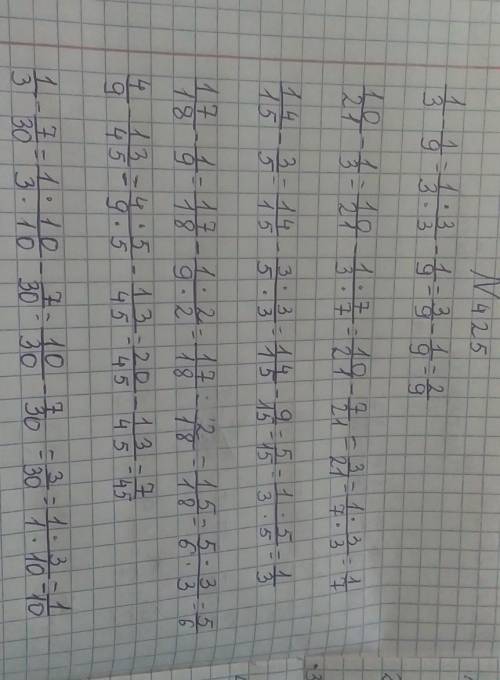 N 425
1/3 - 1/9 = 1·3/3·3 - 1/9 = 3/9 - 1/9 = 2/9
10/21 - 1/3 = 10/21 - 1·7/3·7 = 10/21 - 7/21 = 3/21 = 1·3/7·3 = 1/7
14/15 - 3/5 = 14/15 - 3·3/5·3 = 14/15 - 9/15 = 5/15 = 1·5/3·5 = 1/3
17/18 - 1/9 = 17/18 - 1·2/9·2 = 17/18 - 2/18 = 15/18 = 5·3/6·3 = 5/6
4/9 - 13/45 = 4·5/9·5 - 13/45 = 20/45 - 13/45 = 7/45
1/3 - 7/30 = 1·10/3·10 - 7/30 = 10/30 - 7/30 = 3/30 = 1·3/1·10 = 1/10